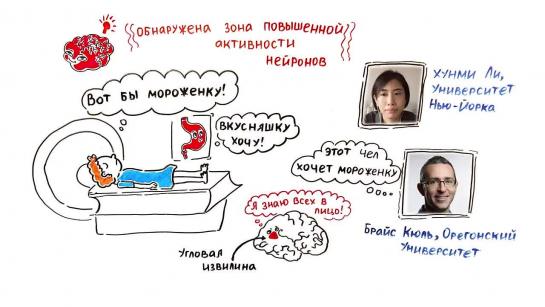 ОБНАРУЖЕНА ЗОНА ПОВЫШЕННОЙ
АКТИВНОСТИ
НЕЙРОНОВ
ВОТ БЫ МОРОЖЕНКУ!
ВКУСНЯШКУ
ХОЧУ!
ХУНМИ ЛИ,
УНИВЕРСИТЕТ
НЬЮ-ЙОРКА
ЭТОТ ЧЕЛ
ХОЧЕТ МОРОЖЕНКУ
Я ЗНАЮ ВСЕХ В
ЛИЦО!
УГЛОВАЯ
ИЗВИЛИНА
БРАЙС КЮЛЬ, ОРЕГОНСКИЙ
УНИВЕРСИТЕТ